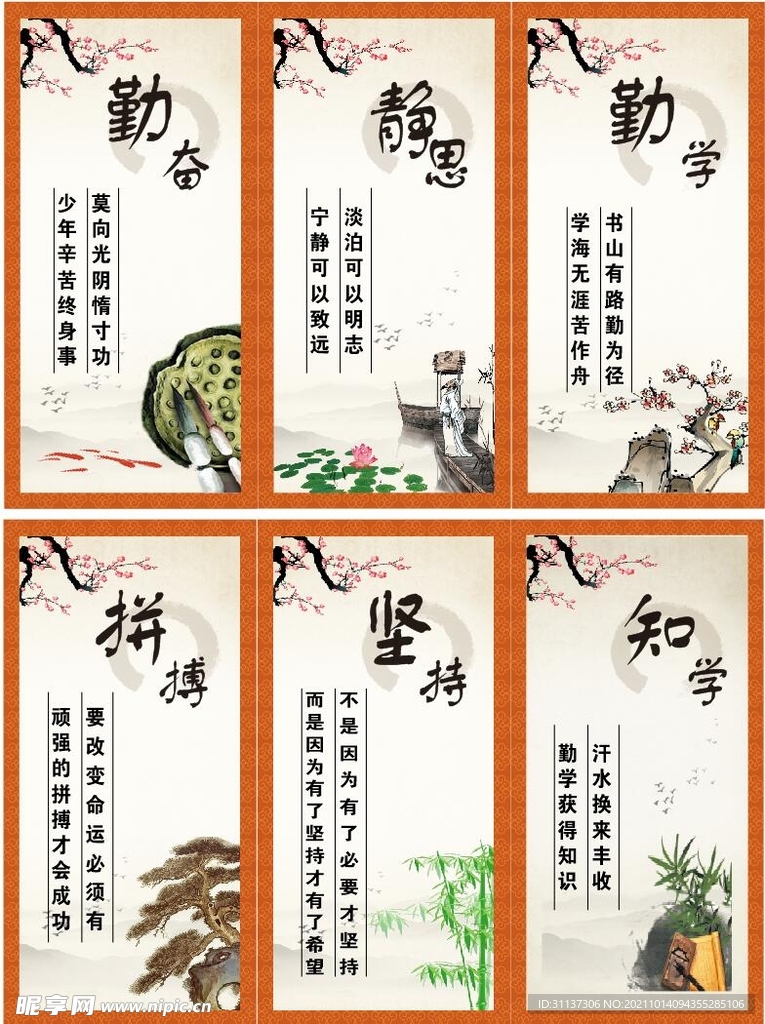 勤奋
莫向光阴惰寸功
少年辛苦终身事
静思
淡泊可以明志
宁静可以致远
勤学
书山有路勤为径
学海无涯苦作舟
拼搏
要改变命运必须有
顽强的拼搏才会成功
坚持
不是因为有了必要才坚持
而是因为有了坚持才有了希望
知学
汗水换来丰收
勤学获得知识
昵享网 www.nipic.cn
ID:31137306 NO:20211014094355285106